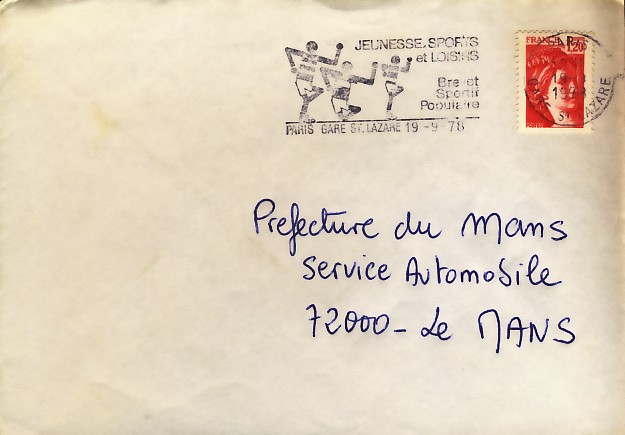 JEUNESSE, SPORTS
et LOISIRS
Brevet
Sportif
Populaire
PARIS GARE ST. LAZARE 19 -9 -78
FRANCE 1,20
Prefecture du Mans
Service Automobile
72000 - Le MANS